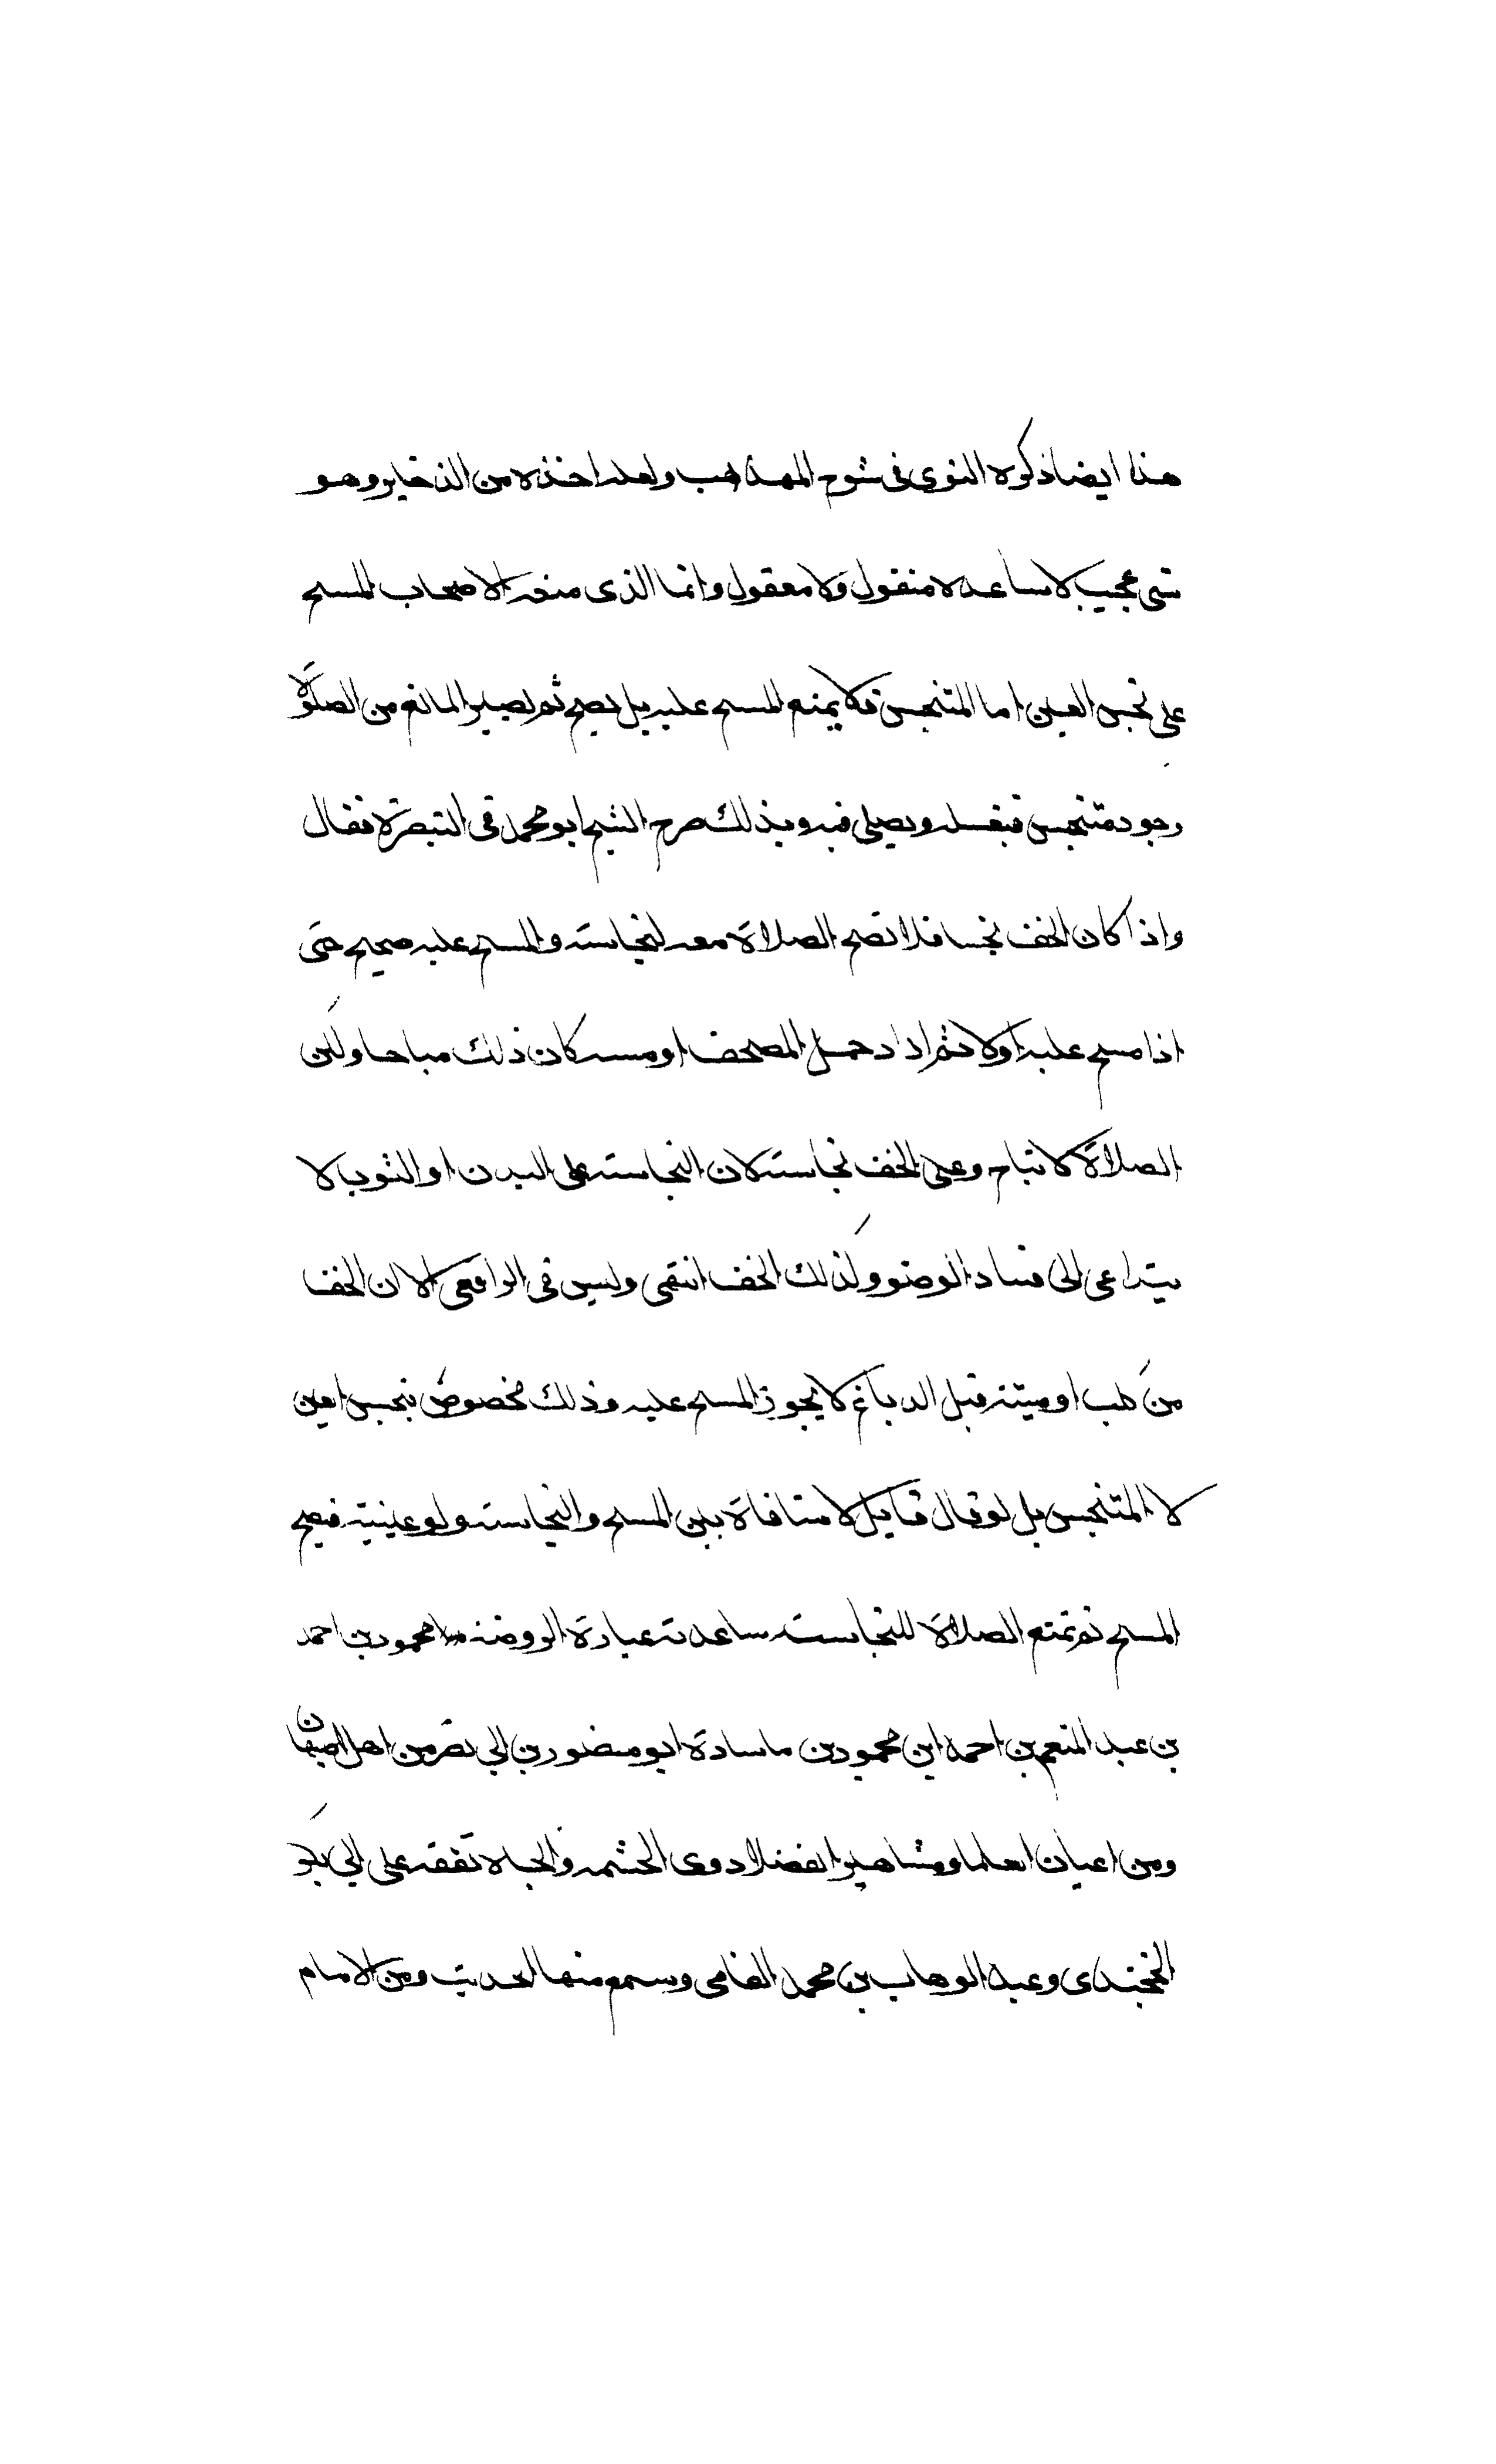 هذا ايضا ذكره النووى فى شرح المهذب ولعله اخذه من الذخاير وهو
شى عجيب لا ساعده منقول ولا معقول وانما الذى منعه الاصحاب المسح
على نجس العين اما المتنجس فلا يمنع المسح عليه بل يصح ثم يصير المانع من الصلوة
وجود متنجس فيغسله ويصلى فيه وبذلك صرح الشيخ ابو محمد فى التبصرة فقال
واذا كان الخف نجسا فلا تصح الصلاة معه لنجاسته والمسح عليه صحيح حتى
اذا مسح عليه اولا ثم اراد حمل المصحف او مسه كان ذلك مباحا ولكن
الصلاة لا تباح وعلى الخف نجاسة لان النجاسة على البدن او الثوب لا
يتداعى الى فساد الوضو وكذلك الخف انتهى وليس فى الرافعى الا ان الخف
من كلب او ميتة قبل الدباغ لا يجوز المسح عليه وذلك مخصوص بنجس العين
لا المتنجس بل لو قال قايل لا منافاة بين المسح والنجاسة ولو عينية فيصح
المسح ثم تمتع الصلاة للنجاسة ساعدته عبارة الروضة محمود بن احمد
بن عبد المنعم بن احمد ابن محمود بن ماسادة ابو منصور بن ابي نصر من اهل اصبهان
ومن اعيان العلما ومشاهير الفضلا ذوى الحشمه والجاه تفقه على ابي بكر
الخجندى وعبد الوهاب بن محمد الفامى وسمع منهما الحديث ومن الامام